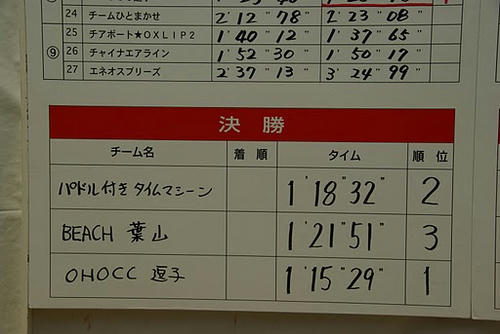 24 チームひとまかせ 2'12"78" 2'23"08"
25 チアポート★OXLIP2 1'40"12" 1'37"65"
⑨ 26 チャイナエアライン 1'52"30" 1'50"17"
27 エネオスブリーズ 2'37"13" 3'24"99"
決勝
チーム名 着順 タイム 順位
パドル付きタイムマシーン 1'18"32" 2
BEACH 葉山 1'21"51" 3
OHOCC 逗子 1'15"29" 1